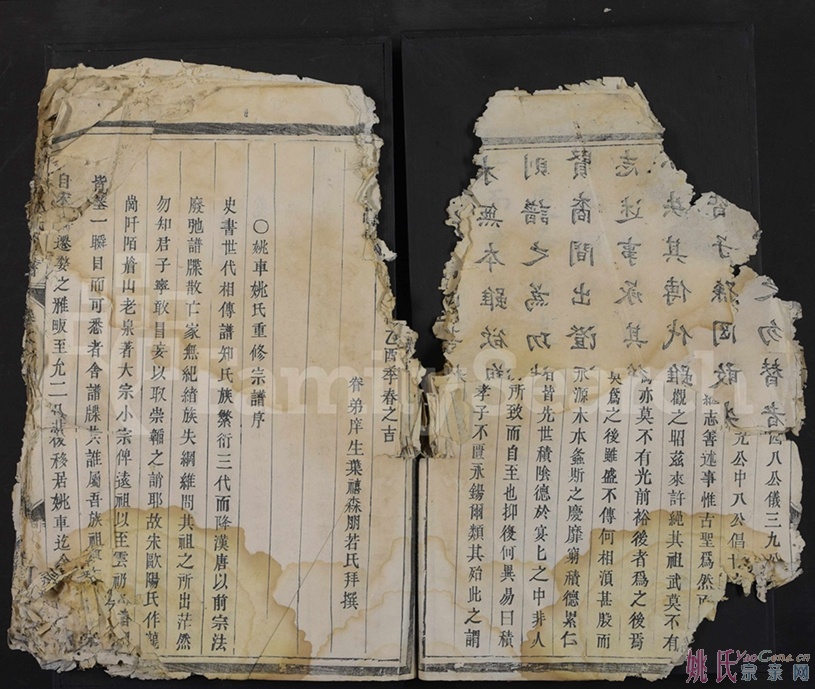 公儀三九公
九公中八公倡十
志善述事惟古聖爲然
觀之昭茲來許繩其祖武莫不有
亦莫不有光前裕後者爲之後焉
爲之後雖盛不傳何相湏甚殷而
源木本螽斯之慶靡窮積德累仁
皆先世積隂德於冥匕之中非人
所致而自至也抑後何異易曰積
孝子不匱永錫爾類其殆此之謂
乙酉季春之吉
眷弟庠生葉禧森朋若氏拜撰
〇姚車姚氏重修宗譜序
史書世代相傳譜知氏族繁衍三代而降漢唐以前宗法
廢弛譜牒散亡家無紀緒族失綱維問其祖之所出茫然
勿知君子寧敢冒妄以取崇韜之誚耶故朱歐陽氏作
阡陌眉山老泉著大宗小宗俾遠祖以至雲礽
皆 一瞬目而可悉者舍譜牒其誰屬吾族祖
自 遷婺之雅畈至九二 後移居姚車迄今
之勿替者
子孫因敢
其傳代雖
志述事承其
賢裔間出澄
則譜之為功
木無本雖欲
姚氏宗亲网
YaoGens.cn
FamilySearch